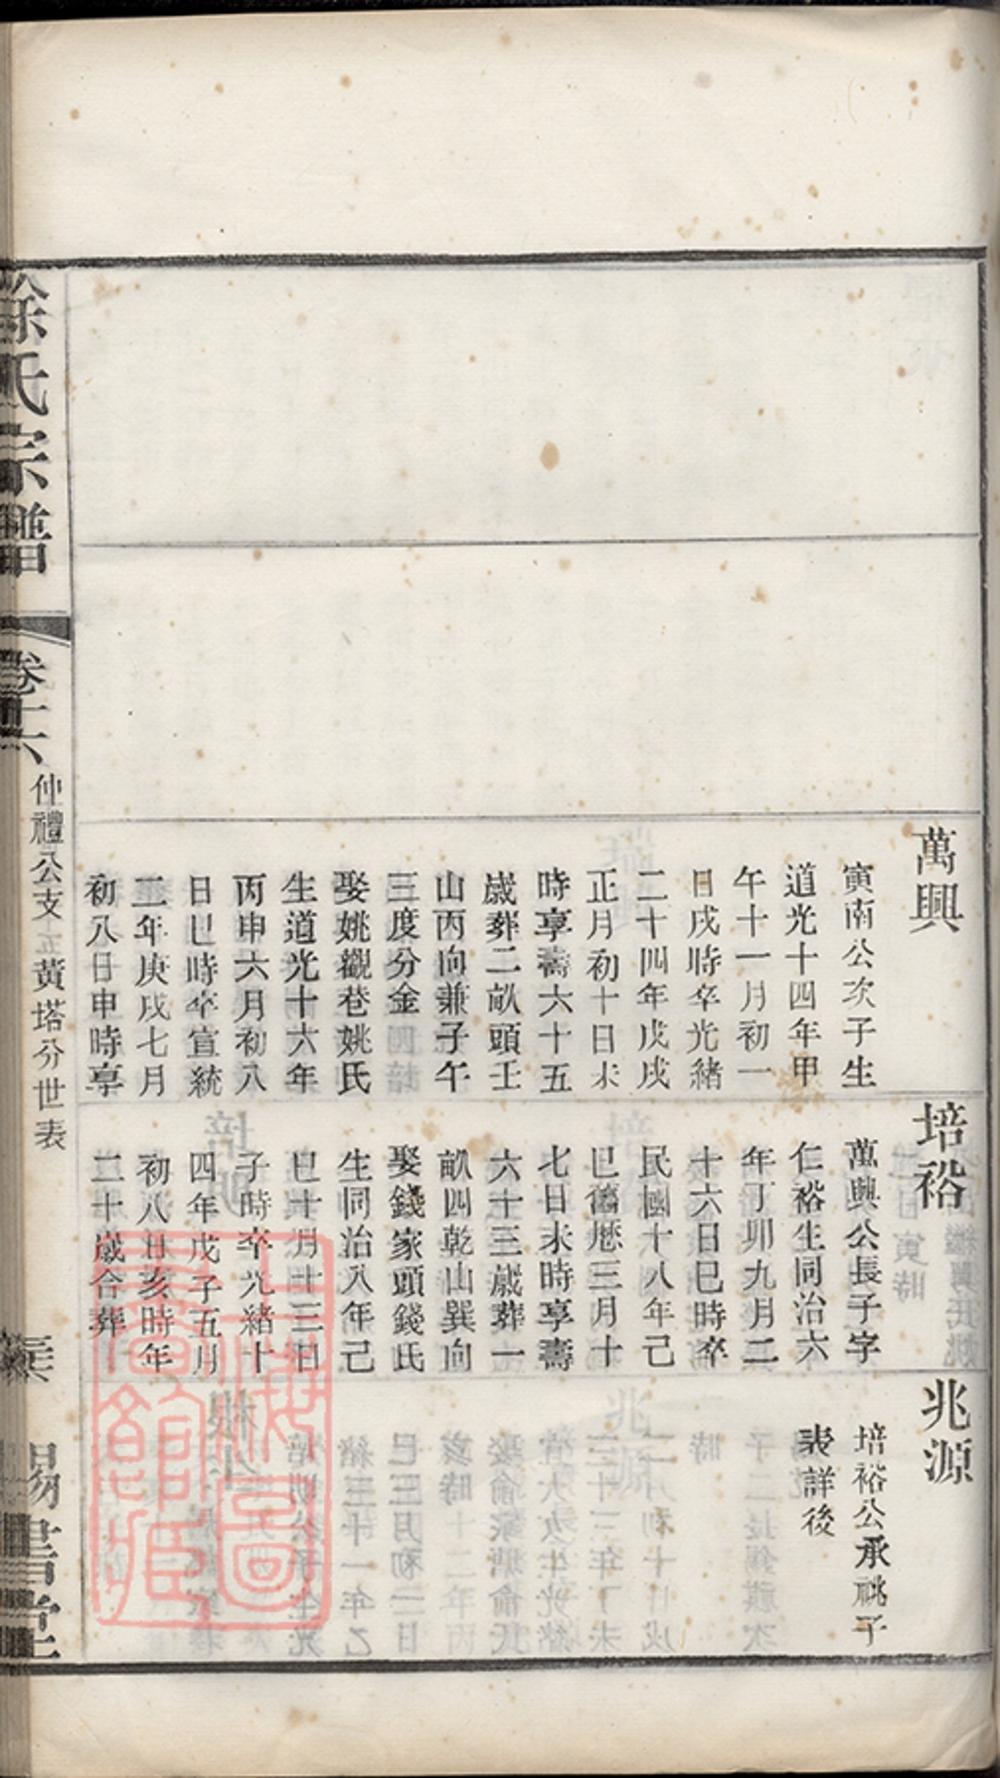 萬興
寅南公次子生
道光十四年甲
午十一月初一
日戌時卒光緒
二十四年戊戌
正月初十日未
時享壽六十五
歲葬二畝頭壬
山丙向兼子午
三度分金
娶姚觀巷姚氏
生道光十六年
丙申六月初八
日巳時卒宣統
二年庚戌七月
初八日申時享
培裕
萬興公長子字
仁裕生同治六
年丁卯九月二
十六日巳時卒
民國十八年己
巳舊曆三月十
七日未時享壽
六十三歲葬一
畝四乾山巽向
娶錢家頭錢氏
生同治八年己
巳十月十三日
子時卒光緒十
四年戊子五月
初八日亥時年
二十歲合葬
兆源
培裕公承祧子
表詳後
徐氏宗譜
卷十六
仲禮公支十五黃塔分世表
錫書堂
上海圖書館藏